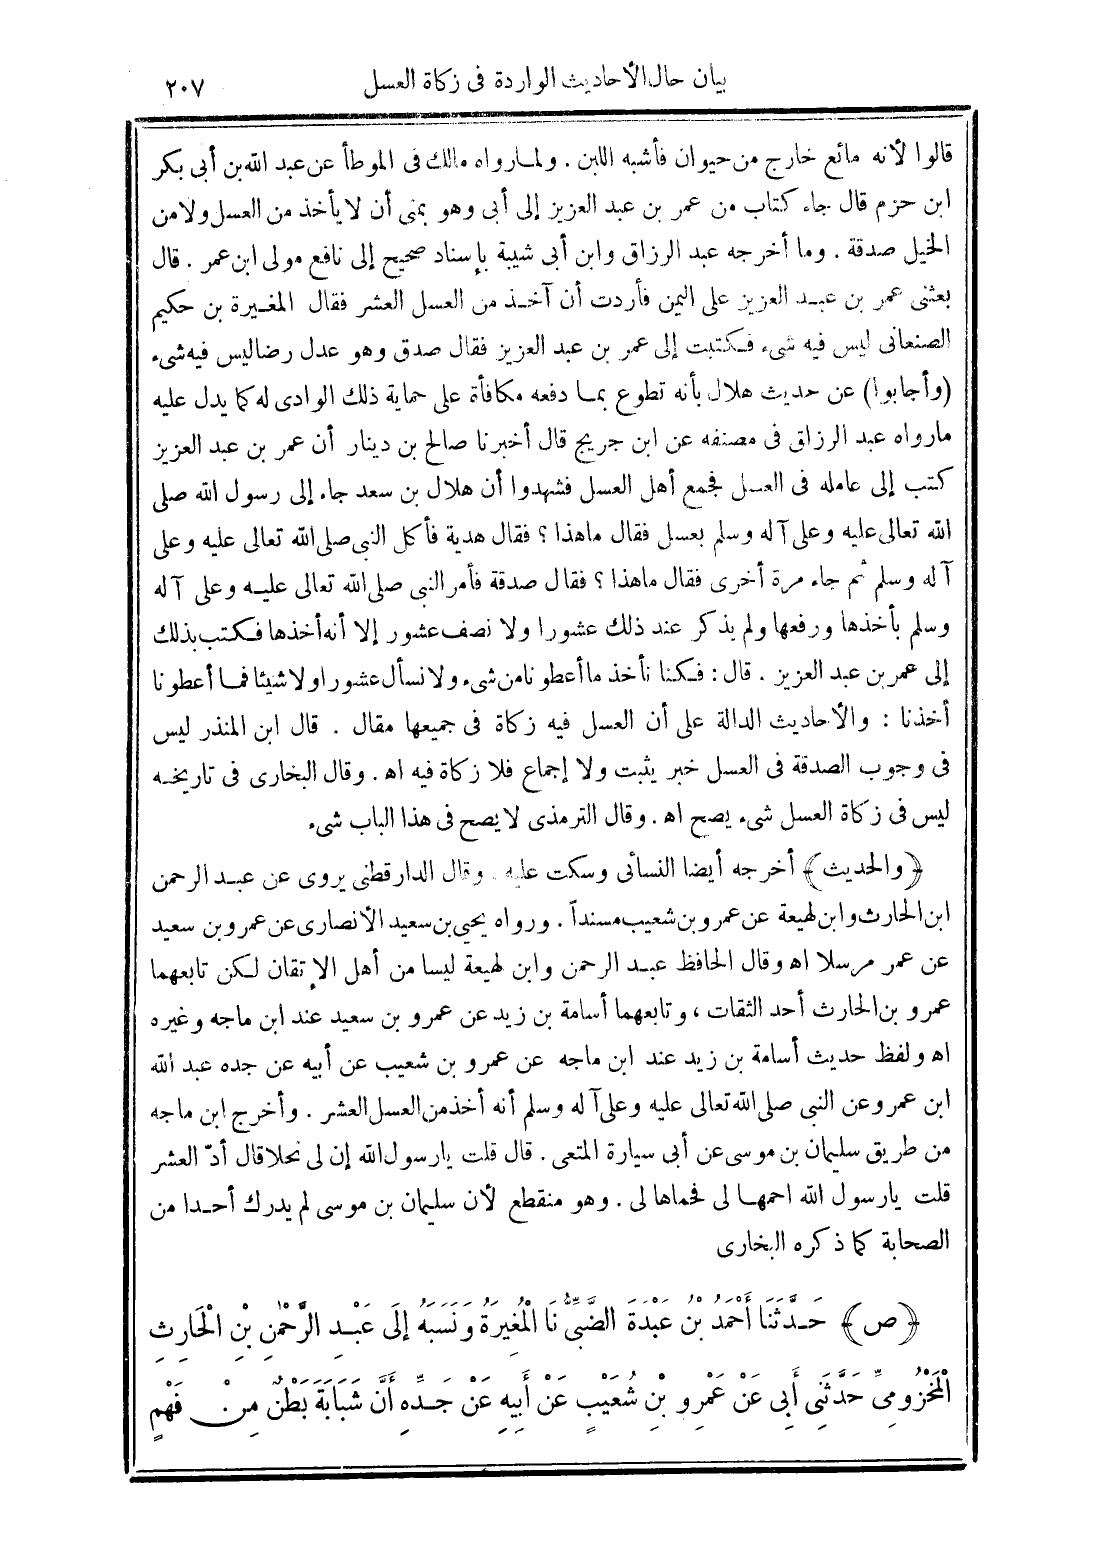 بيان حال الأحاديث الواردة فى زكاة العسل ٢٠٧
قالوا لأنه مائع خارج من حيوان فأشبه اللبن . ولما رواه مالك فى الموطأ عن عبد الله بن أبى بكر
ابن حزم قال جاء كتاب من عمر بن عبد العزيز إلى أبى وهو بمنى أن لا يأخذ من العسل ولا من
الخيل صدقة . وما أخرجه عبد الرزاق وابن أبى شيبة بإسناد صحيح إلى نافع مولى ابن عمر . قال
بعثنى عمر بن عبد العزيز على اليمن فأردت أن آخذ من العسل العشر فقال المغيرة بن حكيم
الصنعانى ليس فيه شىء فكتبت إلى عمر بن عبد العزيز فقال صدق وهو عدل رضا ليس فيه شىء
(وأجابوا) عن حديث هلال بأنه تطوع بما دفعه مكافأة على حماية ذلك الوادى له كما يدل عليه
مارواه عبد الرزاق فى مصنفه عن ابن جريج قال أخبرنا صالح بن دينار أن عمر بن عبد العزيز
كتب إلى عامله فى العسل فجمع أهل العسل فشهدوا أن هلال بن سعد جاء إلى رسول الله صلى
الله تعالى عليه وعلى آله وسلم بعسل فقال ماهذا ؟ فقال هدية فأكل النبى صلى الله تعالى عليه وعلى
آله وسلم ثم جاء مرة أخرى فقال ماهذا ؟ فقال صدقة فأمر النبى صلى الله تعالى عليه وعلى آله
وسلم بأخذها ورفعها ولم يذكر عند ذلك عشورا ولا نصف عشور إلا أنه أخذها فكتب بذلك
إلى عمر بن عبد العزيز . قال : فكنا نأخذ ما أعطونا من شىء ولا نسأل عشورا ولا شيئا فما أعطونا
أخذنا : والأحاديث الدالة على أن العسل فيه زكاة فى جميعها مقال . قال ابن المنذر ليس
فى وجوب الصدقة فى العسل خبر يثبت ولا إجماع فلا زكاة فيه اه . وقال البخارى فى تاريخه
ليس فى زكاة العسل شىء يصح اه . وقال الترمذى لا يصح فى هذا الباب شىء
﴿والحديث﴾ أخرجه أيضا النسائى وسكت عليه . وقال الدارقطنى يروى عن عبد الرحمن
ابن الحارث وابن لهيعة عن عمرو بن شعيب مسنداً . ورواه يحيى بن سعيد الأنصارى عن عمرو بن سعيد
عن عمر مرسلا اه وقال الحافظ عبد الرحمن وابن لهيعة ليسا من أهل الإتقان لكن تابعهما
عمرو بن الحارث أحد الثقات ، وتابعهما أسامة بن زيد عن عمرو بن سعيد عند ابن ماجه وغيره
اه ولفظ حديث أسامة بن زيد عند ابن ماجه عن عمرو بن شعيب عن أبيه عن جده عبد الله
ابن عمرو عن النبى صلى الله تعالى عليه وعلى آله وسلم أنه أخذ من العسل العشر . وأخرج ابن ماجه
من طريق سليمان بن موسى عن أبى سيارة المتعى . قال قلت يارسول الله إن لى نحلا قال أدّ العشر
قلت يارسول الله احمها لى فحماها لى . وهو منقطع لأن سليمان بن موسى لم يدرك أحدا من
الصحابة كما ذكره البخارى
﴿ص﴾ حَدَّثَنَا أَحْمَدُ بْنُ عَبْدَةَ الضَّبِّىُّ نَا الْمُغِيرَةُ وَنَسَبَهُ إِلَى عَبْدِ الرَّحْمٰنِ بْنِ الْحَارِثِ
الْمَخْزُومِىِّ حَدَّثَنِى أَبِى عَنْ عَمْرِو بْنِ شُعَيْبٍ عَنْ أَبِيهِ عَنْ جَدِّهِ أَنَّ شَبَابَةَ بَطْنٌ مِنْ فَهْمٍ